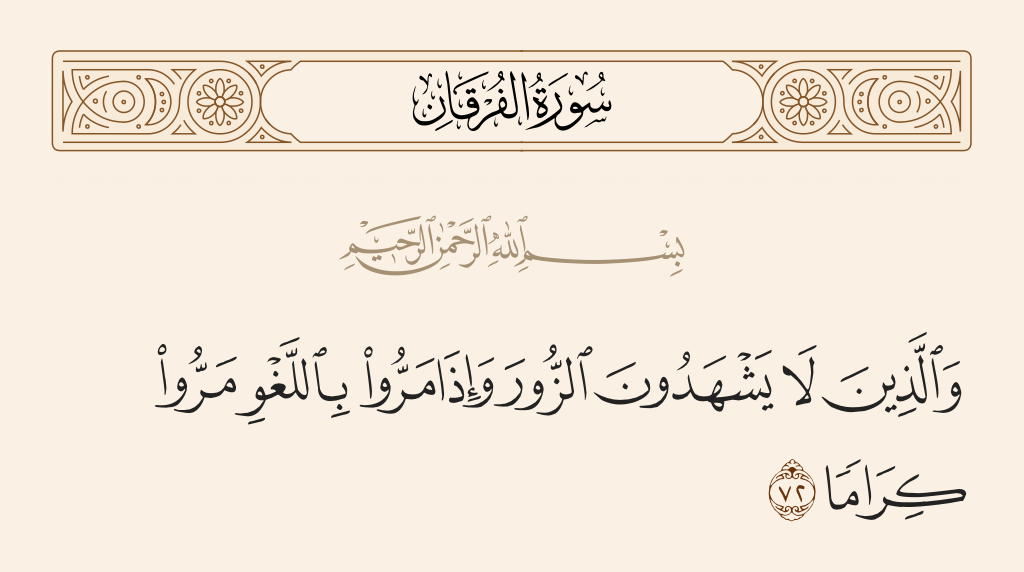 سُورَةُ الفُرْقَان
بِسْمِ ٱللَّهِ ٱلرَّحْمَٰنِ ٱلرَّحِيمِ
وَٱلَّذِينَ لَا يَشْهَدُونَ ٱلزُّورَ وَإِذَا مَرُّوا۟ بِٱللَّغْوِ مَرُّوا۟
كِرَامًا ٧٢